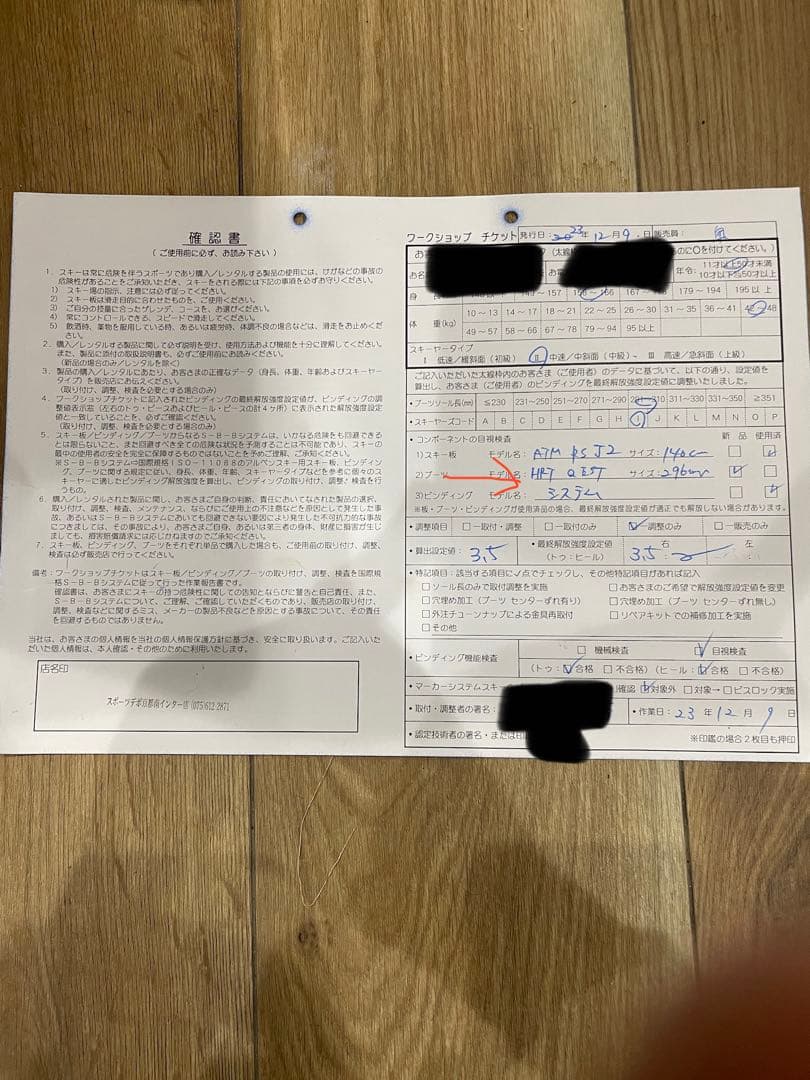 確認書
(ご使用前に必ず、お読み下さい)
1．スキーは常に危険を伴うスポーツであり購入／レンタルする製品の使用には、けがなどの事故の
危険性があることをご承知いただき、スキーをされる際には下記の事項を必ずお守りください。
1) スキー場の指示、注意には必ず従ってください。
2) スキー板は滑走目的に合わせたものを、ご使用ください。
3) ご自分の技量に合ったゲレンデ、コースを、お選びください。
4) 常にコントロールできる、スピードで滑走してください。
5) 飲酒時、薬物を服用している時、あるいは疲労時、体調不良の場合などは、滑走をおとめく
ださい。
2．購入／レンタルする製品に関して必ず説明を受け、使用方法および機能を十分に理解してください。
また、製品に添付の取扱説明書も、必ずご使用前にお読みください。
(新品の場合のみ／レンタルを除く)
3．製品の購入／レンタルにあたり、お客さまの正確なデータ（身長、体重、年齢およびスキーヤー
タイプ）を販売店にお伝えください。
(取り付け、調整、検査を必要とする場合のみ)
4．ワークショップチケットに記入されたビンディングの最終解放強度設定値が、ビンディングの調
整値表示窓（左右のトゥ・ピースおよびヒール・ピースの計4ヶ所）に表示された解放強度設定
値と一致していることを、必ずご確認ください。
(取り付け、調整、検査を必要とする場合のみ)
5．スキー板／ビンディング／ブーツからなるS－B－Bシステムは、いかなる危険も回避できる
とは限らないこと、また回避すべき全ての危険な状況を予測することは不可能であり、スキーの
最中の使用者の安全を完全に保障するものではないことを予めご了承ください。
※S－B－Bシステム⇒国際規格ISO－11088のアルペンスキー用スキー板、ビンディン
グ、ブーツに関する規定に従い、身長、体重、年齢、スキーヤータイプなどを参考に個々のスキ
ーヤーに適したビンディング解放強度を算出し、ビンディングの取り付け、調整、検査を行
うもの。
6．購入／レンタルされた製品に関し、お客さまご自身の判断、責任においてなされた製品の選択、
取り付け、調整、検査、メンテナンス、ならびにご使用上の不注意などが原因として発生した事
故、あるいはS－B－Bシステムにおいても回避できない要因により発生した不可抗力的な事故
などにつきましては、その事故により、お客さまご自身、あるいは第三者の身体、財産に損害が生じ
ましても、損害賠償請求には応じかねますのでご承知ください。
7．スキー板、ビンディング、ブーツをそれぞれ単品で購入した場合も、ご使用前の取り付け、調整、
検査は必ず販売店で行ってください。
備考：ワークショップチケットはスキー板／ビンディング／ブーツの取り付け、調整、検査を国際規
格S－B－Bシステムに従って行った作業報告書です。
確認書は、お客さまにスキーの持つ危険性に関しての告知とならびに警告と自己責任、また、
S－B－Bシステムについて、ご理解、ご確認していただくものであり、販売店の取り付け、
調整、検査などに関するミス、メーカーの製品不良などを原因とする事故について、その責任
を回避するものではありません。
当社は、お客さまの個人情報を当社の個人情報保護方針に基づき、安全に取り扱います。ご記入いた
だいた個人情報は、本人確認・その他のためにのみ利用いたします。
店名印
スポーツデポ京都南インター店 (075)612-2871
ワークショップ チケット 発行日：2023年12月9日 販売員：
のに○を付けてください。)
年令： 11才以上50才未満
10才以下50才以上
身 長 157 158～166 179～194 195以上
体 重(kg) 10～13 14～17 18～21 22～25 26～30 31～35 36～41 42～48
49～57 58～66 67～78 79～94 95以上
スキーヤータイプ
Ⅰ 低速／緩斜面（初級） Ⅱ 中速／中斜面（中級）～ Ⅲ 高速／急斜面（上級）
ご記入いただいた太線枠内のお客さま（ご使用者）のデータに基づいて、以下の通り、設定値を
算出し、お客さま（ご使用者）のビンディングを最終解放強度設定値に調整いたしました。
・ブーツソール長(mm) ≦230 231～250 251～270 271～290 291～310 311～330 331～350 ≧351
・スキーヤーズコード A B C D E F G H I J K L M N O P
・コンポーネントの目視検査 新品 使用済
1)スキー板 モデル名：ATM RS J2 サイズ：140cm
2)ブーツ モデル名： サイズ：296mm
3)ビンディング モデル名：システム
※板・ブーツ・ビンディングが使用済品の場合、最終解放強度設定値が適正でも解放しない場合があります。
・調整項目 □取付・調整 □取付のみ ☑調整のみ □販売のみ
・算出設定値：3.5 ・最終解放強度設定値（トゥ：ヒール） 右 3.5： 左
・特記項目：該当する項目に✓点でチェックし、その他特記項目があれば記入
□ソール長のみで取付調整を実施 □お客さまのご希望で解放強度設定値を変更
□穴埋め加工（ブーツ センターずれ有り） □穴埋め加工（ブーツ センターずれ無し）
□外注チューンナップによる金具再取付 □リペアキットでの補修加工を実施
□その他
・ビンディング機能検査 □機械検査 ☑目視検査
(トゥ：☑合格 □不合格) (ヒール：☑合格 □不合格)
・マーカーシステムスキー 確認 ☑対象外 □対象→□ビスロック実施
・取付・調整者の署名： ・作業日：23年12月9日
・認定技術者の署名・または印 ※印鑑の場合2枚目も押印